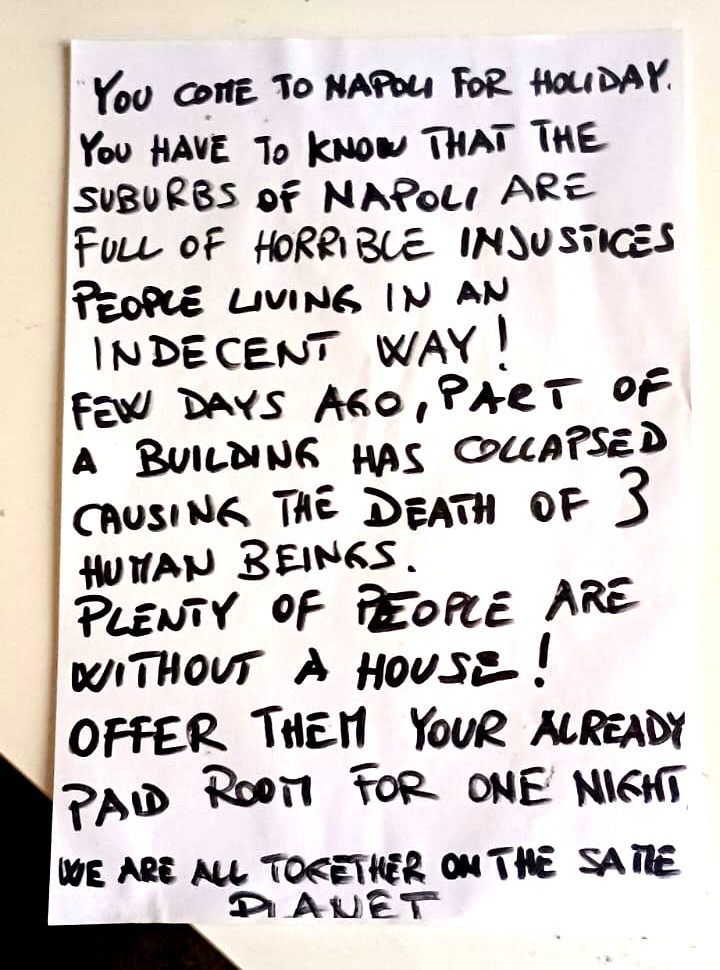 YOU COME TO NAPOLI FOR HOLIDAY.
YOU HAVE TO KNOW THAT THE
SUBURBS OF NAPOLI ARE
FULL OF HORRIBLE INJUSTICES
PEOPLE LIVING IN AN
INDECENT WAY!
FEW DAYS AGO, PART OF
A BUILDING HAS COLLAPSED
CAUSING THE DEATH OF 3
HUMAN BEINGS.
PLENTY OF PEOPLE ARE
WITHOUT A HOUSE!
OFFER THEM YOUR ALREADY
PAID ROOM FOR ONE NIGHT
WE ARE ALL TOGETHER ON THE SAME
PLANET